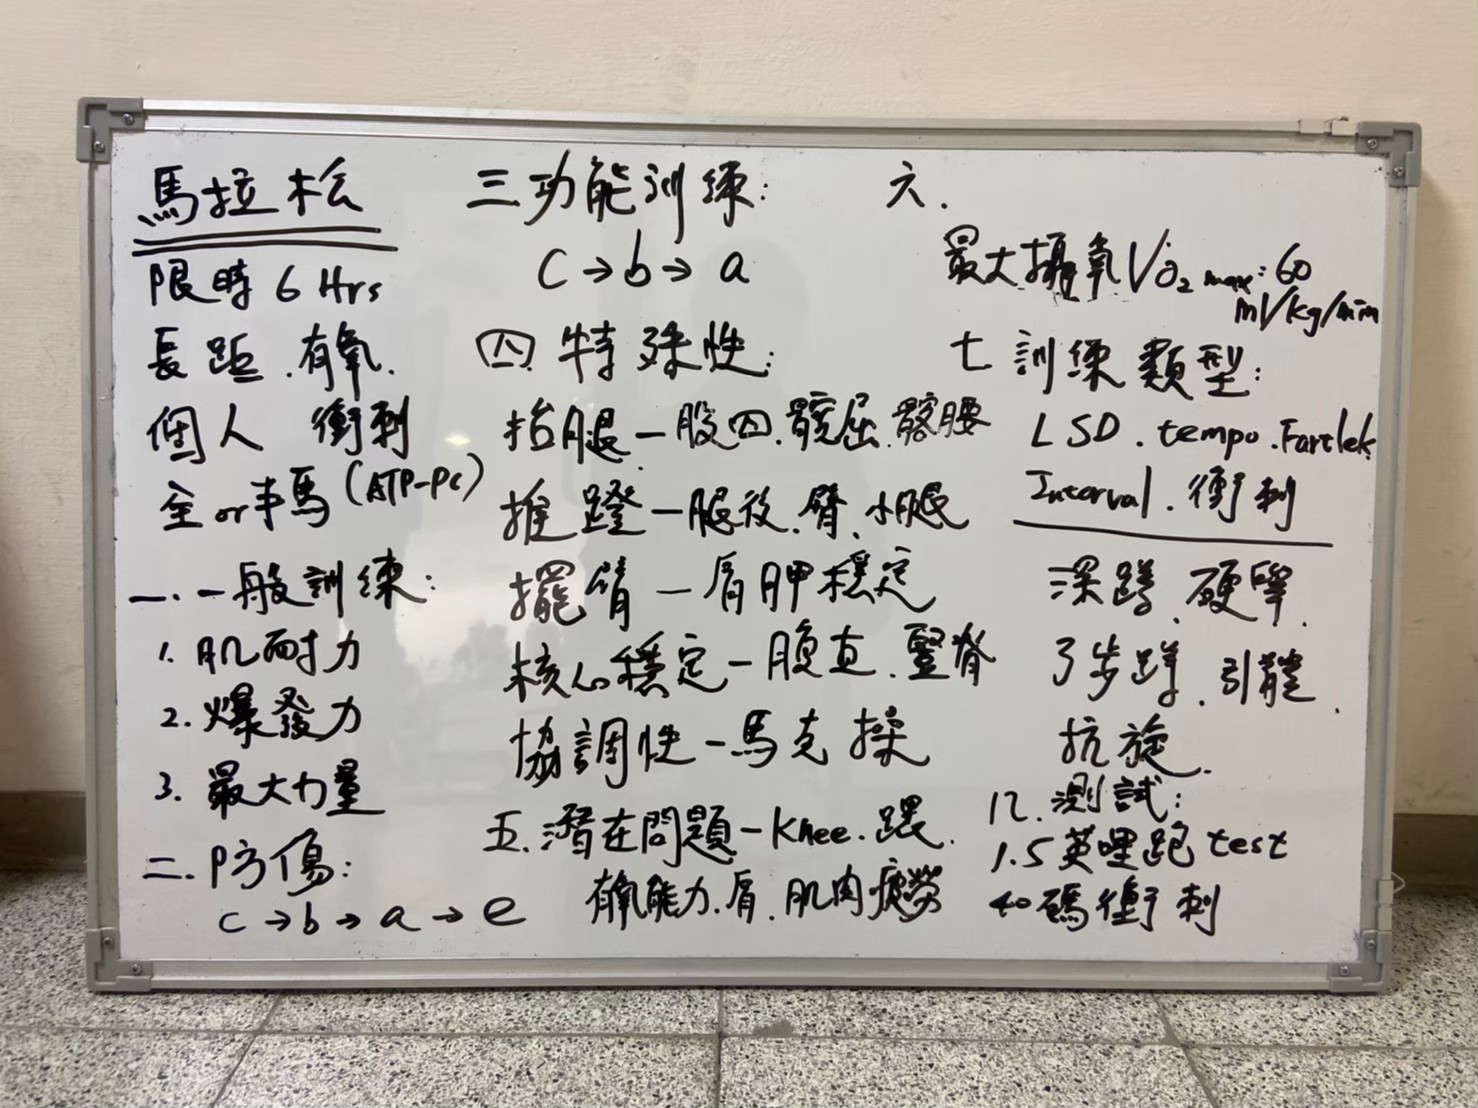 馬拉松
限時 6 Hrs
長距.有氧.
個人 衝刺
全or半馬(ATP-PC)
一.一般訓練:
1. 肌耐力
2. 爆發力
3. 最大力量
二.防傷:
c→b→a→e
三功能訓練:
c→b→a
四.特殊性:
抬腿-股四.髖屈.髂腰
推蹬-腿後.臀.小腿
擺臂-肩胛穩定
核心穩定-腹直.豎脊
協調性-馬克操
五.潛在問題-Knee.踝.
有氧能力.肩.肌肉疲勞
六.
最大攝氧V̇o₂ max:60
ml/kg/min
七 訓練類型:
LSD.tempo.Fartlek
Interval.衝刺
深蹲.硬舉.
弓步蹲.引體.
抗旋.
八.測試:
1.5英哩跑test
40碼衝刺